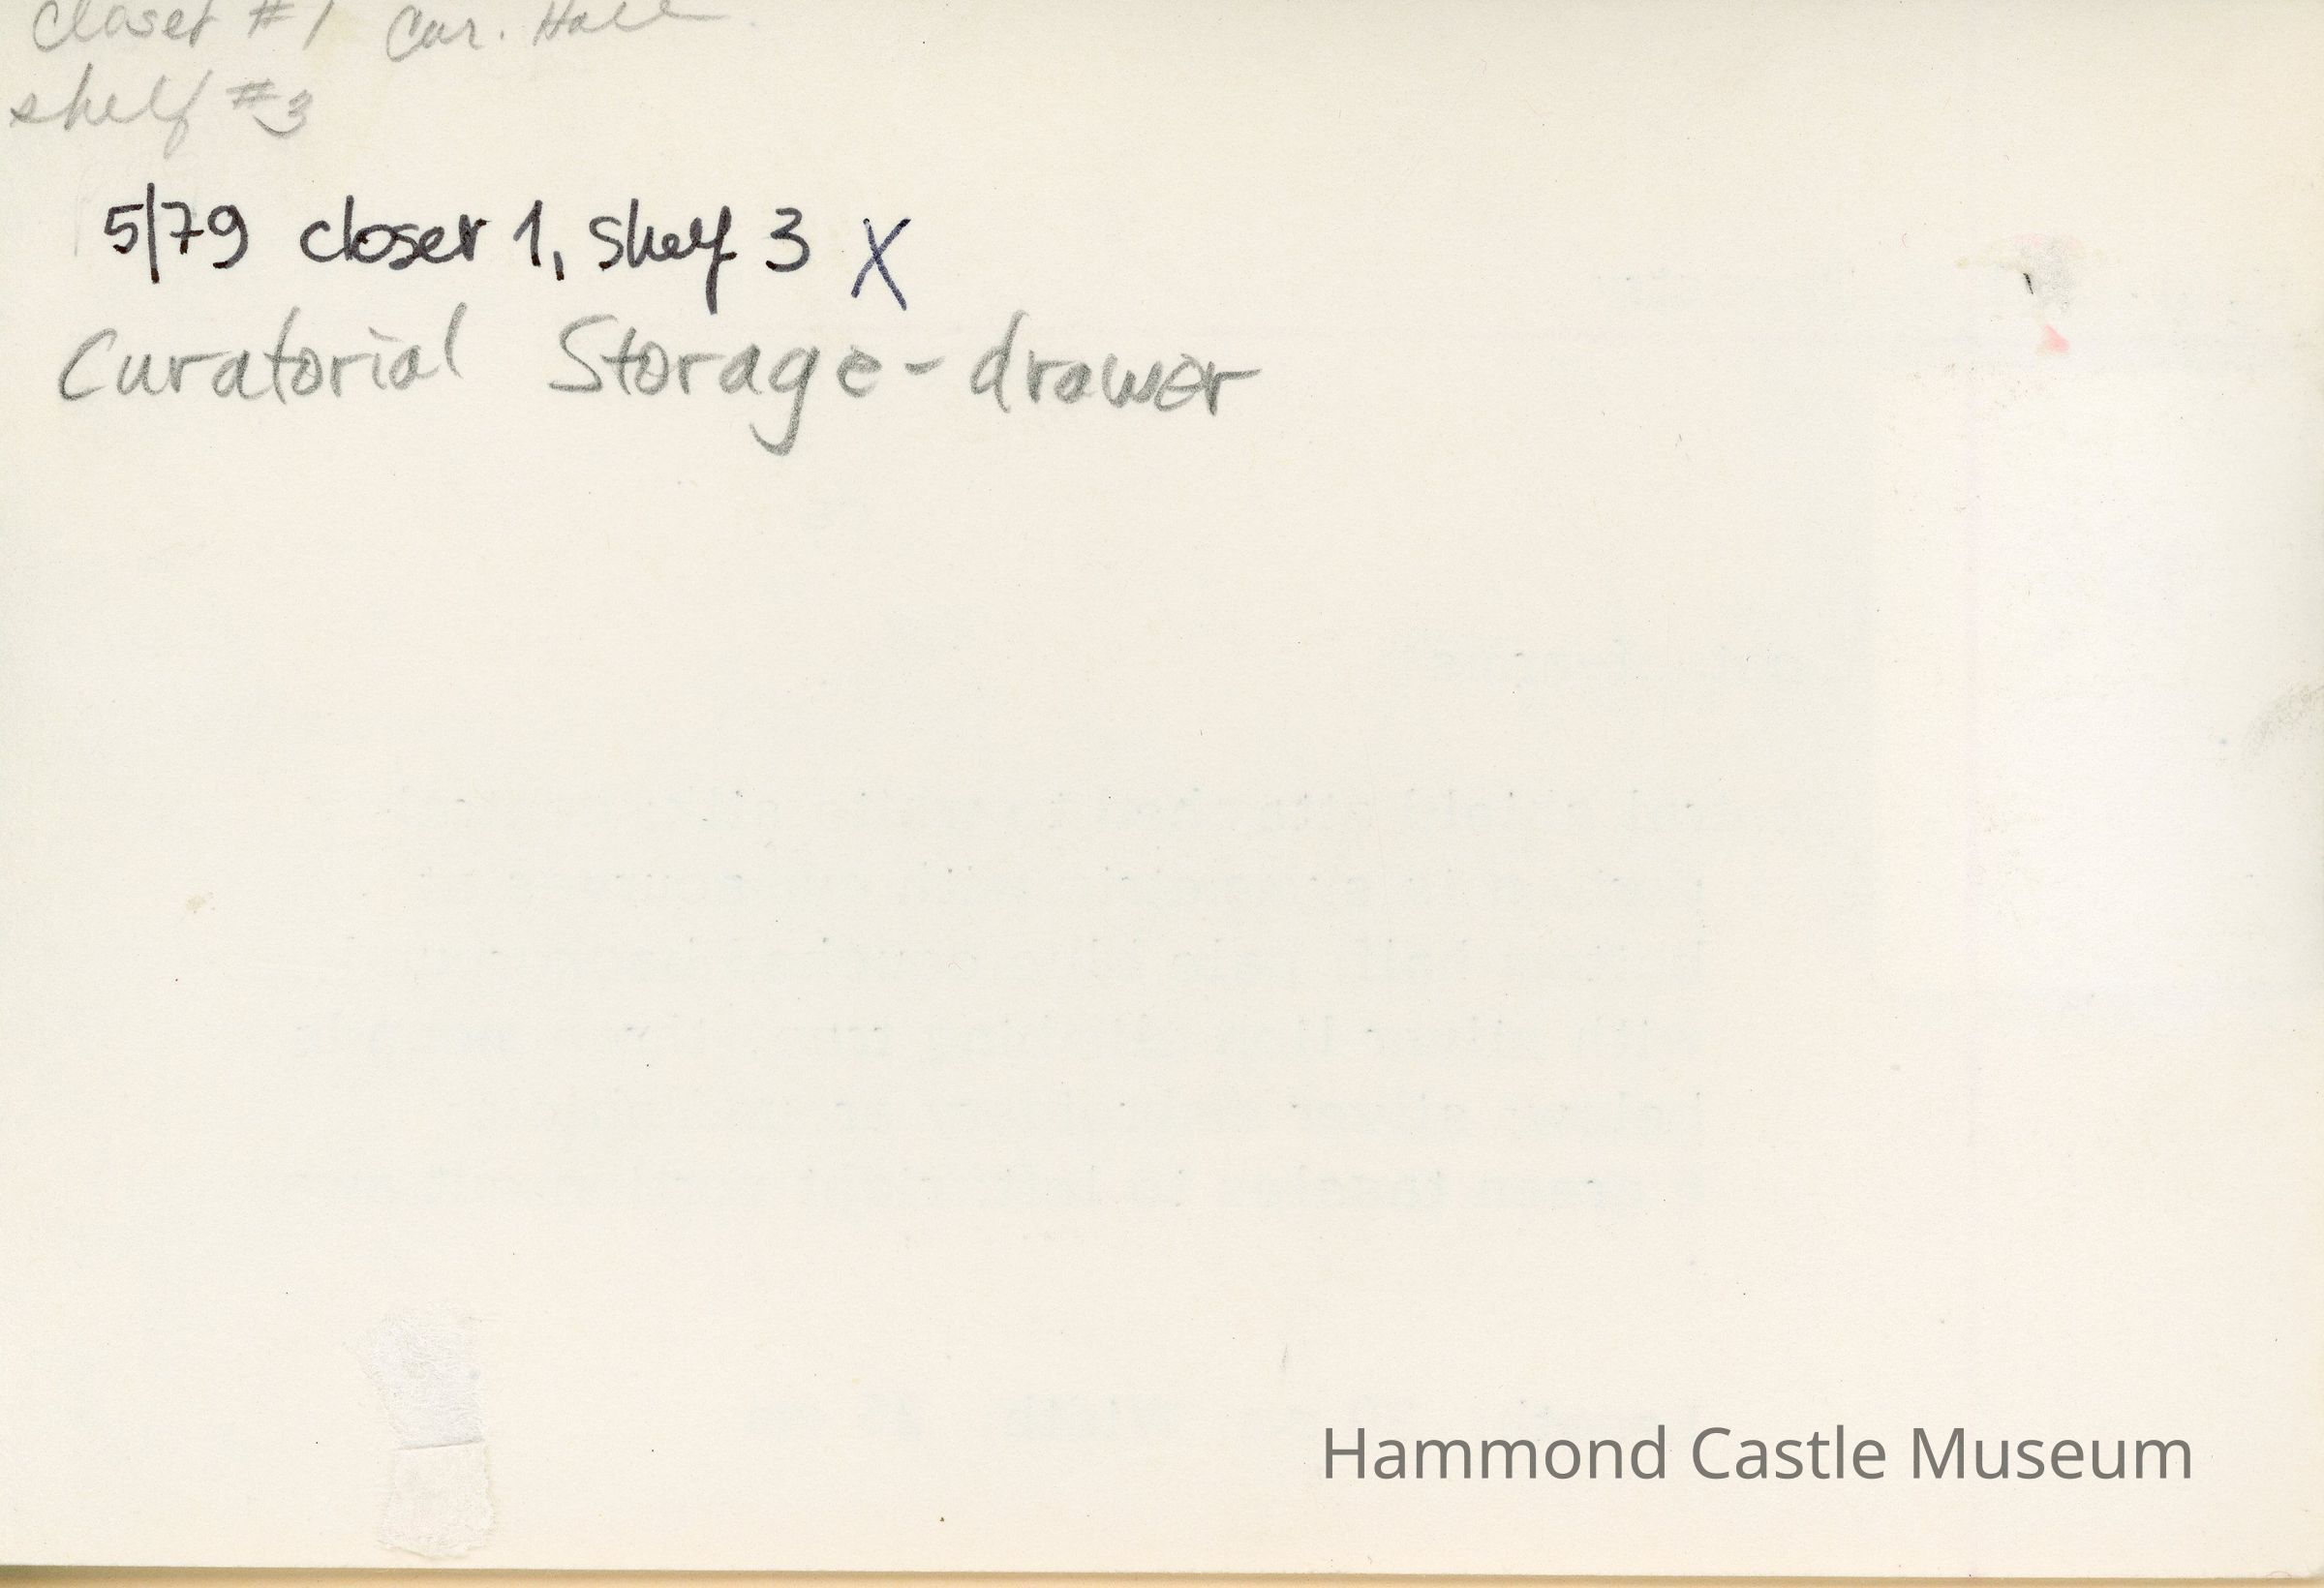 closet #1 Cur. Hall
shelf #3
5/79 closet 1, shelf 3 X
Curatorial Storage - drawer
Hammond Castle Museum